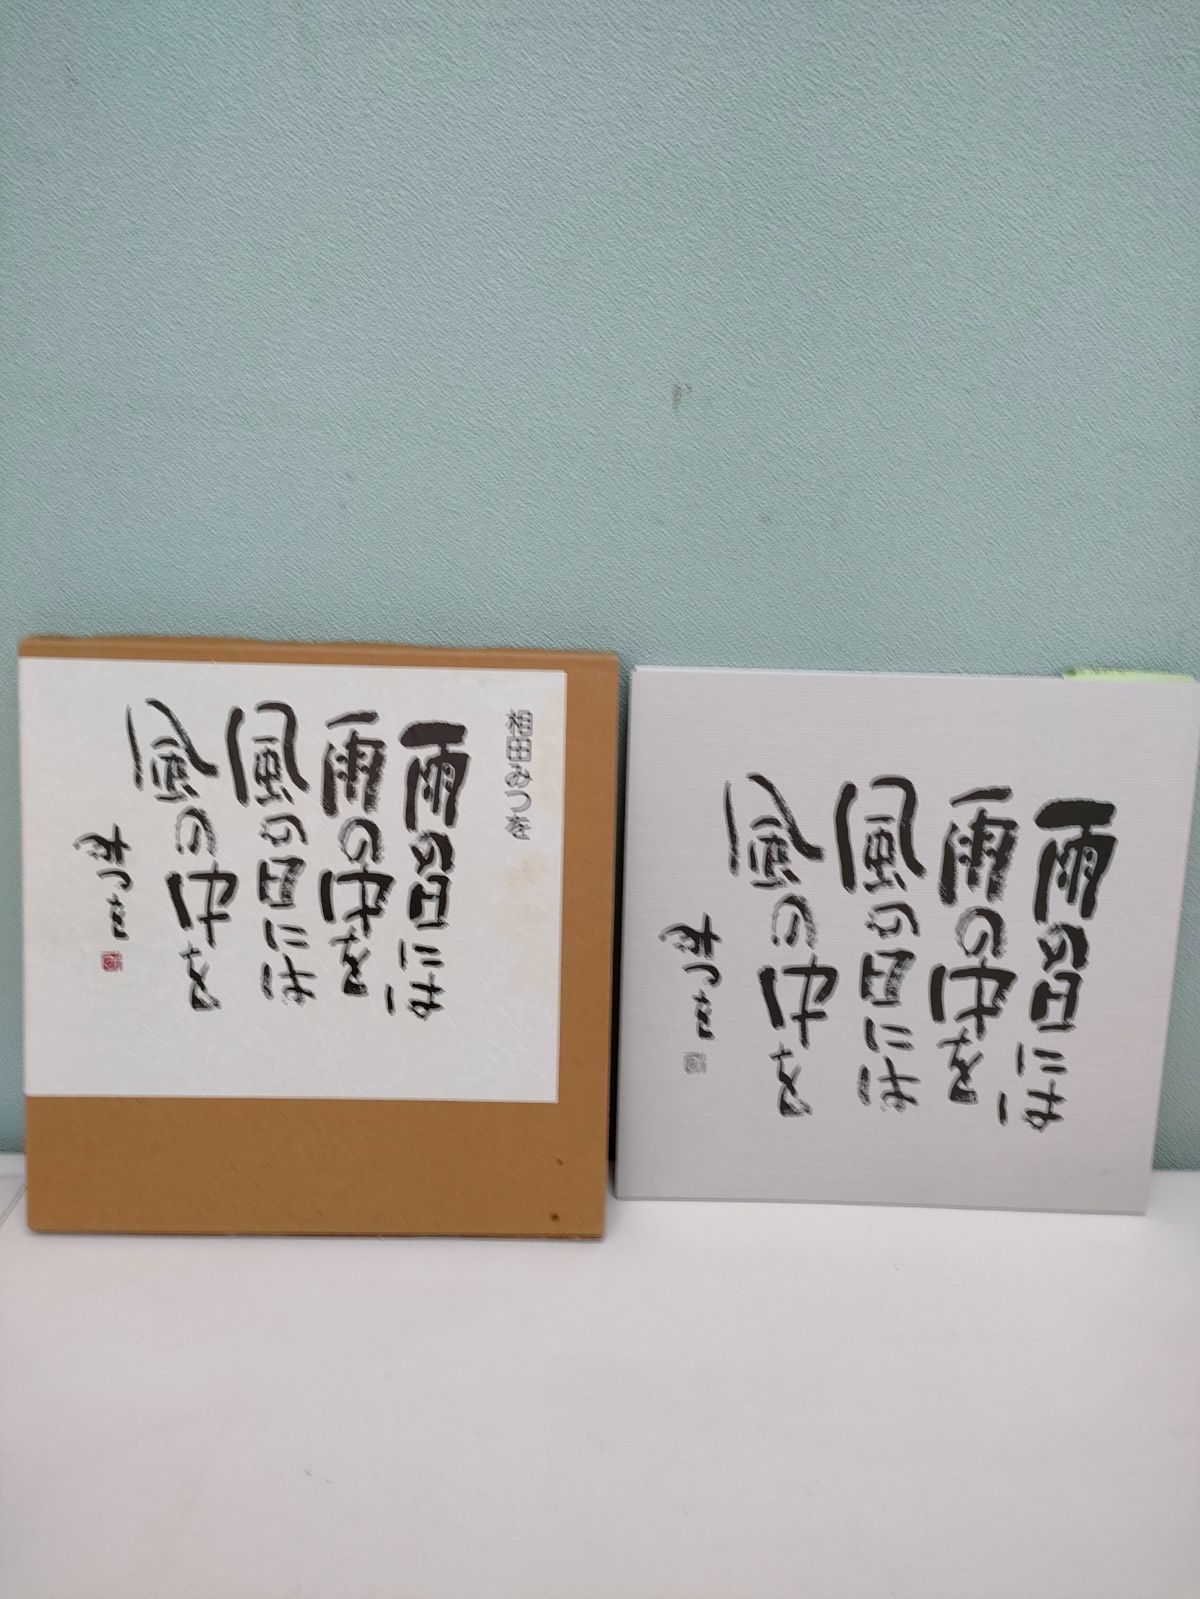 相田みつを
雨の日には
雨の中を
風の日には
風の中を
みつを
雨の日には
雨の中を
風の日には
風の中を
みつを